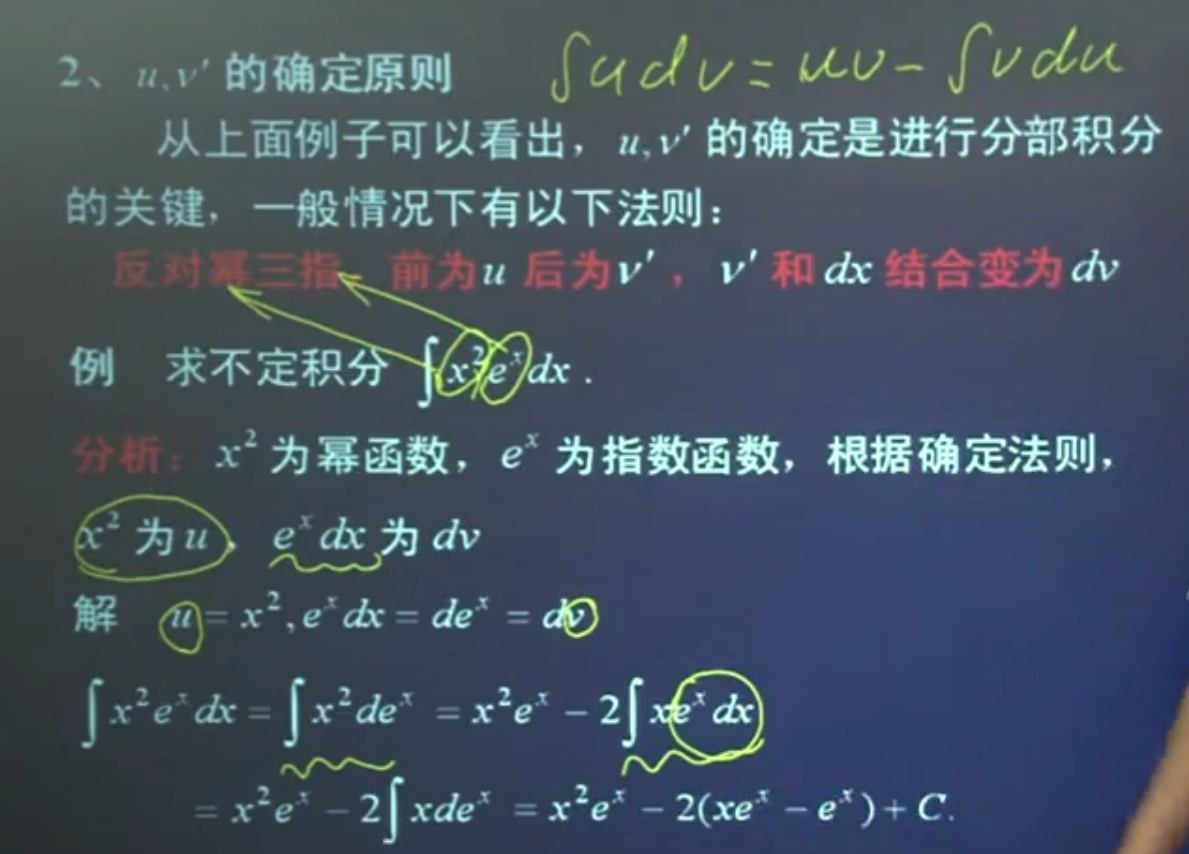 2、u,v′ 的确定原则 ∫udv=uv-∫vdu
从上面例子可以看出，u,v′ 的确定是进行分部积分
的关键，一般情况下有以下法则：
反对幂三指 前为u 后为v′，v′ 和 dx 结合变为 dv
例 求不定积分 ∫x²eˣdx .
分析：x² 为幂函数，eˣ 为指数函数，根据确定法则，
x² 为 u，eˣdx 为 dv
解 u = x², eˣdx = deˣ = dv
∫x²eˣdx = ∫x²deˣ = x²eˣ − 2∫xeˣdx
= x²eˣ − 2∫xdeˣ = x²eˣ − 2(xeˣ − eˣ) + C.